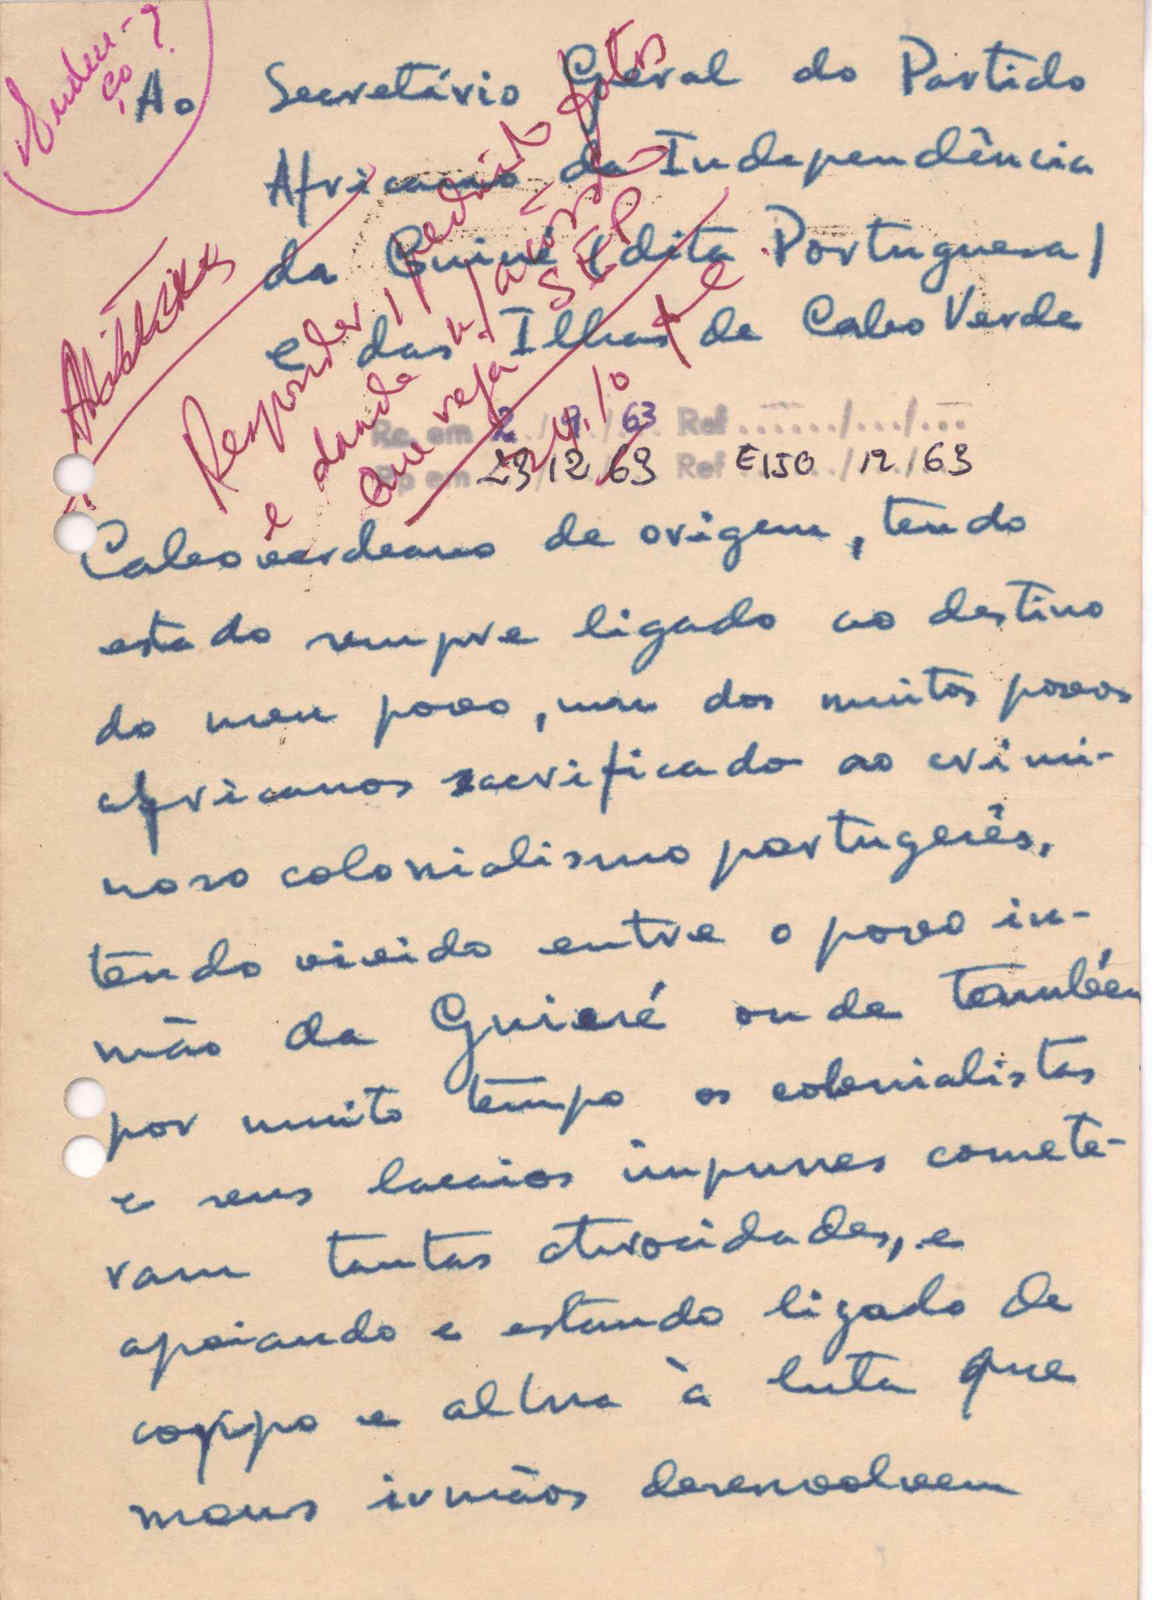 Enden-
ço?
Ao Secretário Geral do Partido
Africano da Independência
da Guiné (dita Portuguesa)
e das Ilhas de Cabo Verde
Responder, pedindo fotos
e dando
que veja SEP
24/10
Rc. em 2/9/63 Ref ....../.../...
Rp em 23/12/63 Ref E150/12/63
Caboverdeano de origem, tendo
estado sempre ligado ao destino
do meu povo, um dos muitos povos
africanos sacrificado ao crimi-
noso colonialismo portugês,
tendo vivido entre o povo ir-
mão da Guiné onde também
por muito tempo os colonialistas
e seus lacaios impunes comete-
ram tantas atrocidades, e
apoiando e estando ligado de
corpo e alma à luta que
meus irmãos desenvolvem